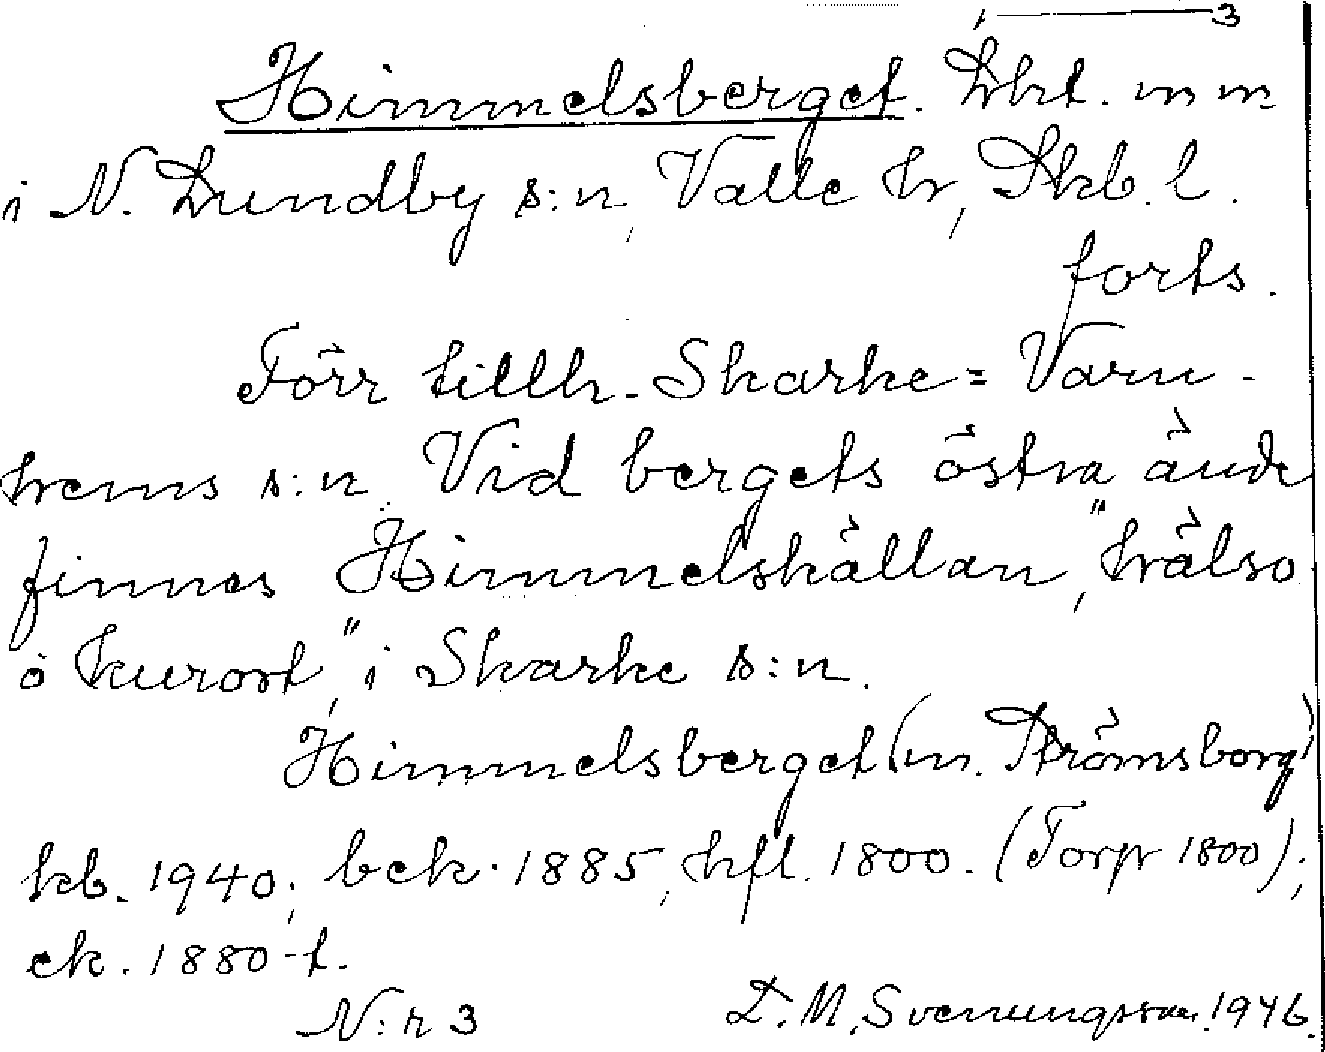 , ——— 3
Himmelsberget. Lht. m m
i N. Lundby s:n, Valle hr, Skb. l.
forts.
Förr tillh. Skarke = Varn-
hems s:n. Vid bergets östra ände
finnes Himmelskällan, "hälso
o kurort", i Skarke s:n.
Himmelsberget (m. Strömsborg)
kb. 1940; bek. 1885, hfl. 1800. (Torp 1800);
ek. 1880-t.
N:r 3 D. M. Svenungsson. 1946.